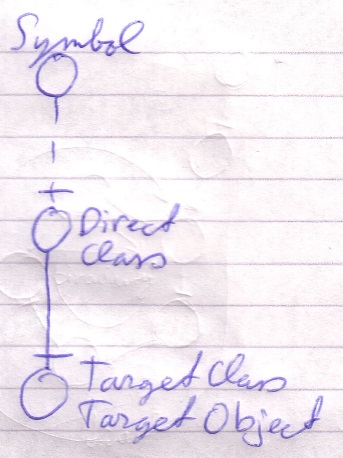 Symbol
Direct
Class
Target Class
Target Object